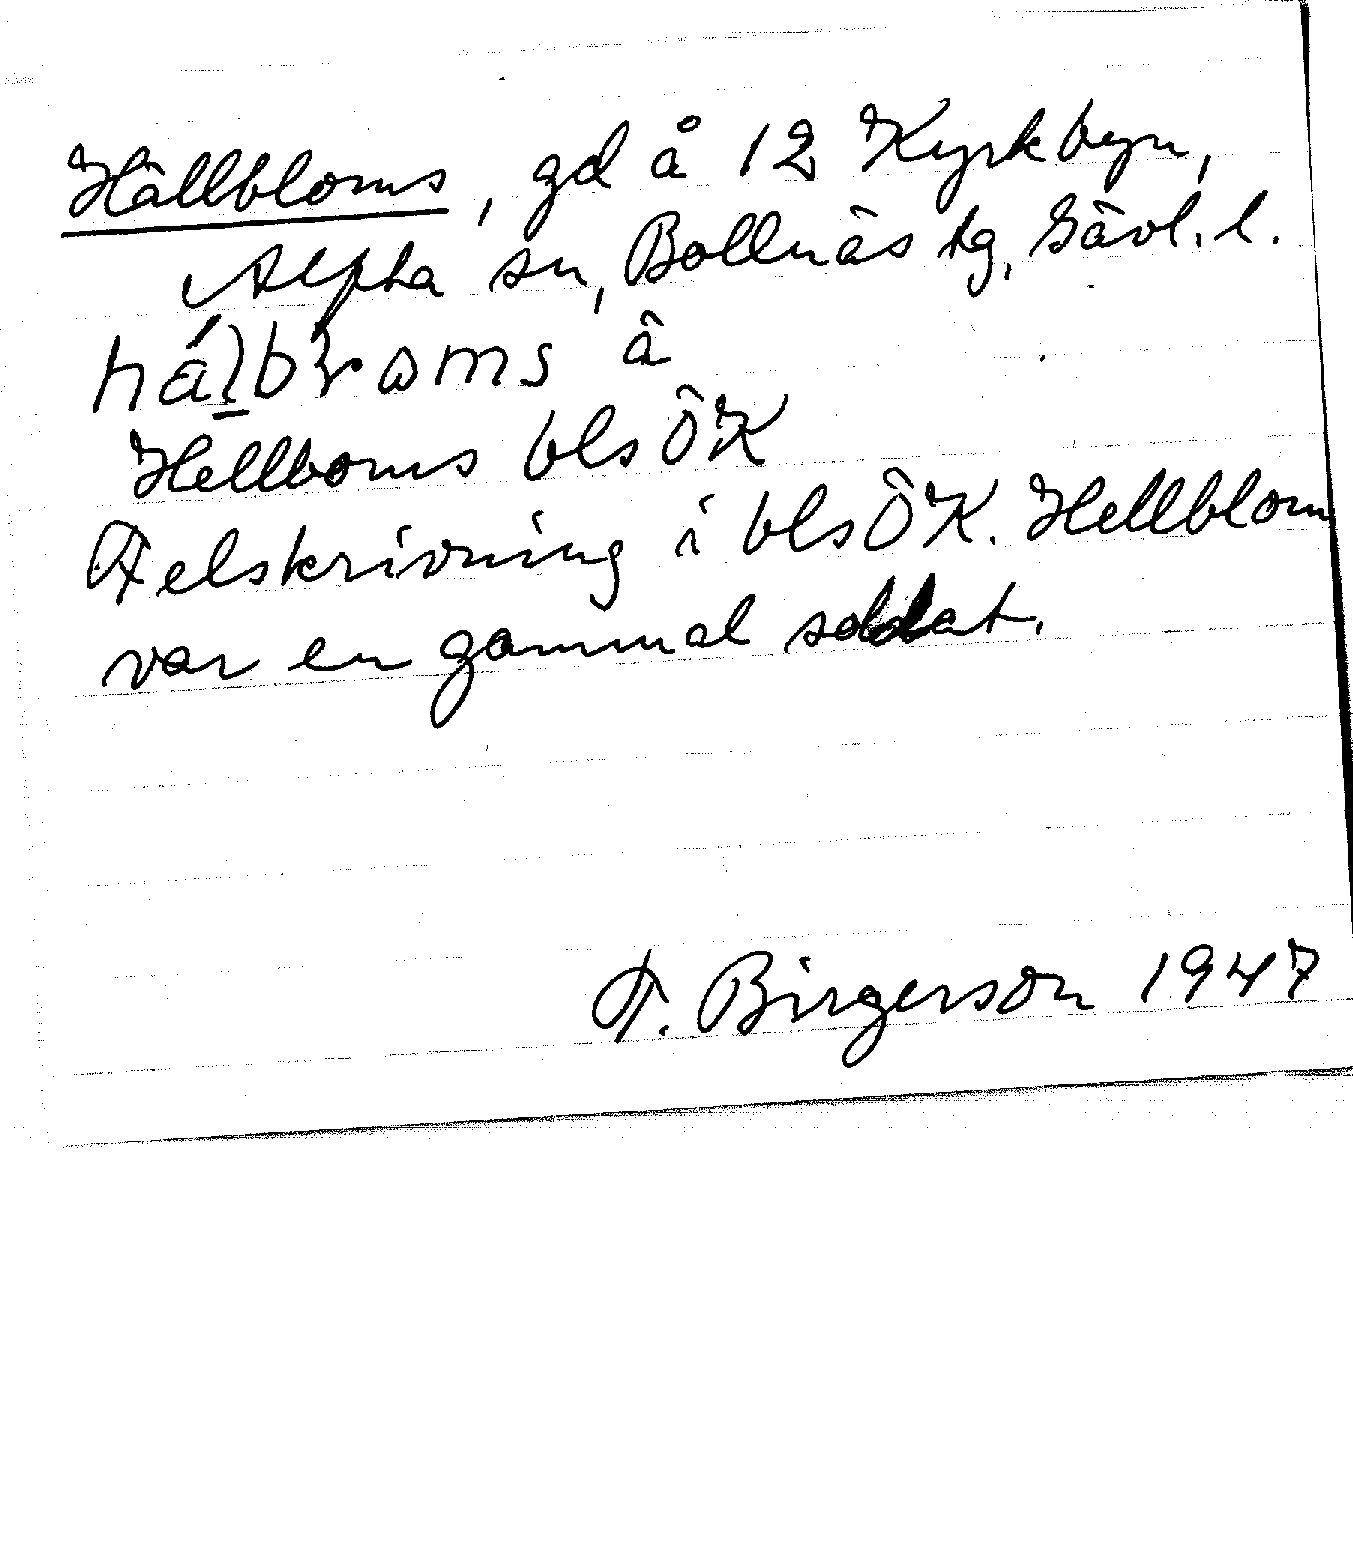 Hällbloms, gd å 12 Kyrkbyn,
Alfta sn, Bollnäs tg, Gävl. l.
Hellboms bls ÖK
Felskrivning i bls ÖK. Hellblom
var en gammal soldat.
F. Birgerson 1947